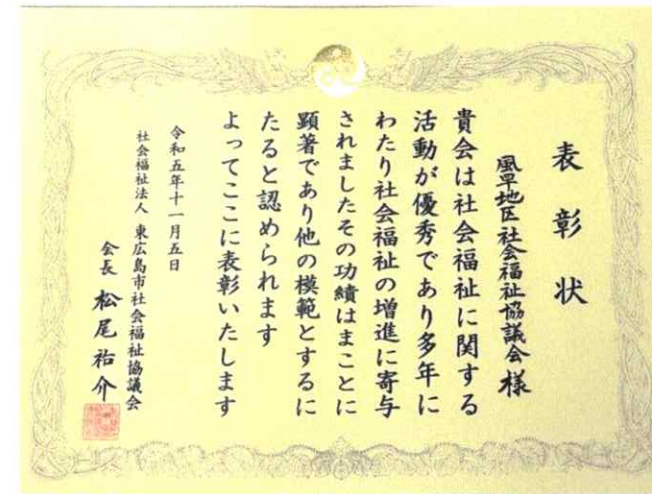 表彰状
風早地区社会福祉協議会様
貴会は社会福祉に関する
活動が優秀であり多年に
わたり社会福祉の増進に寄与
されましたその功績はまことに
顕著であり他の模範とするに
たると認められます
よってここに表彰いたします
令和五年十一月五日
社会福祉法人 東広島市社会福祉協議会
会長 松尾祐介